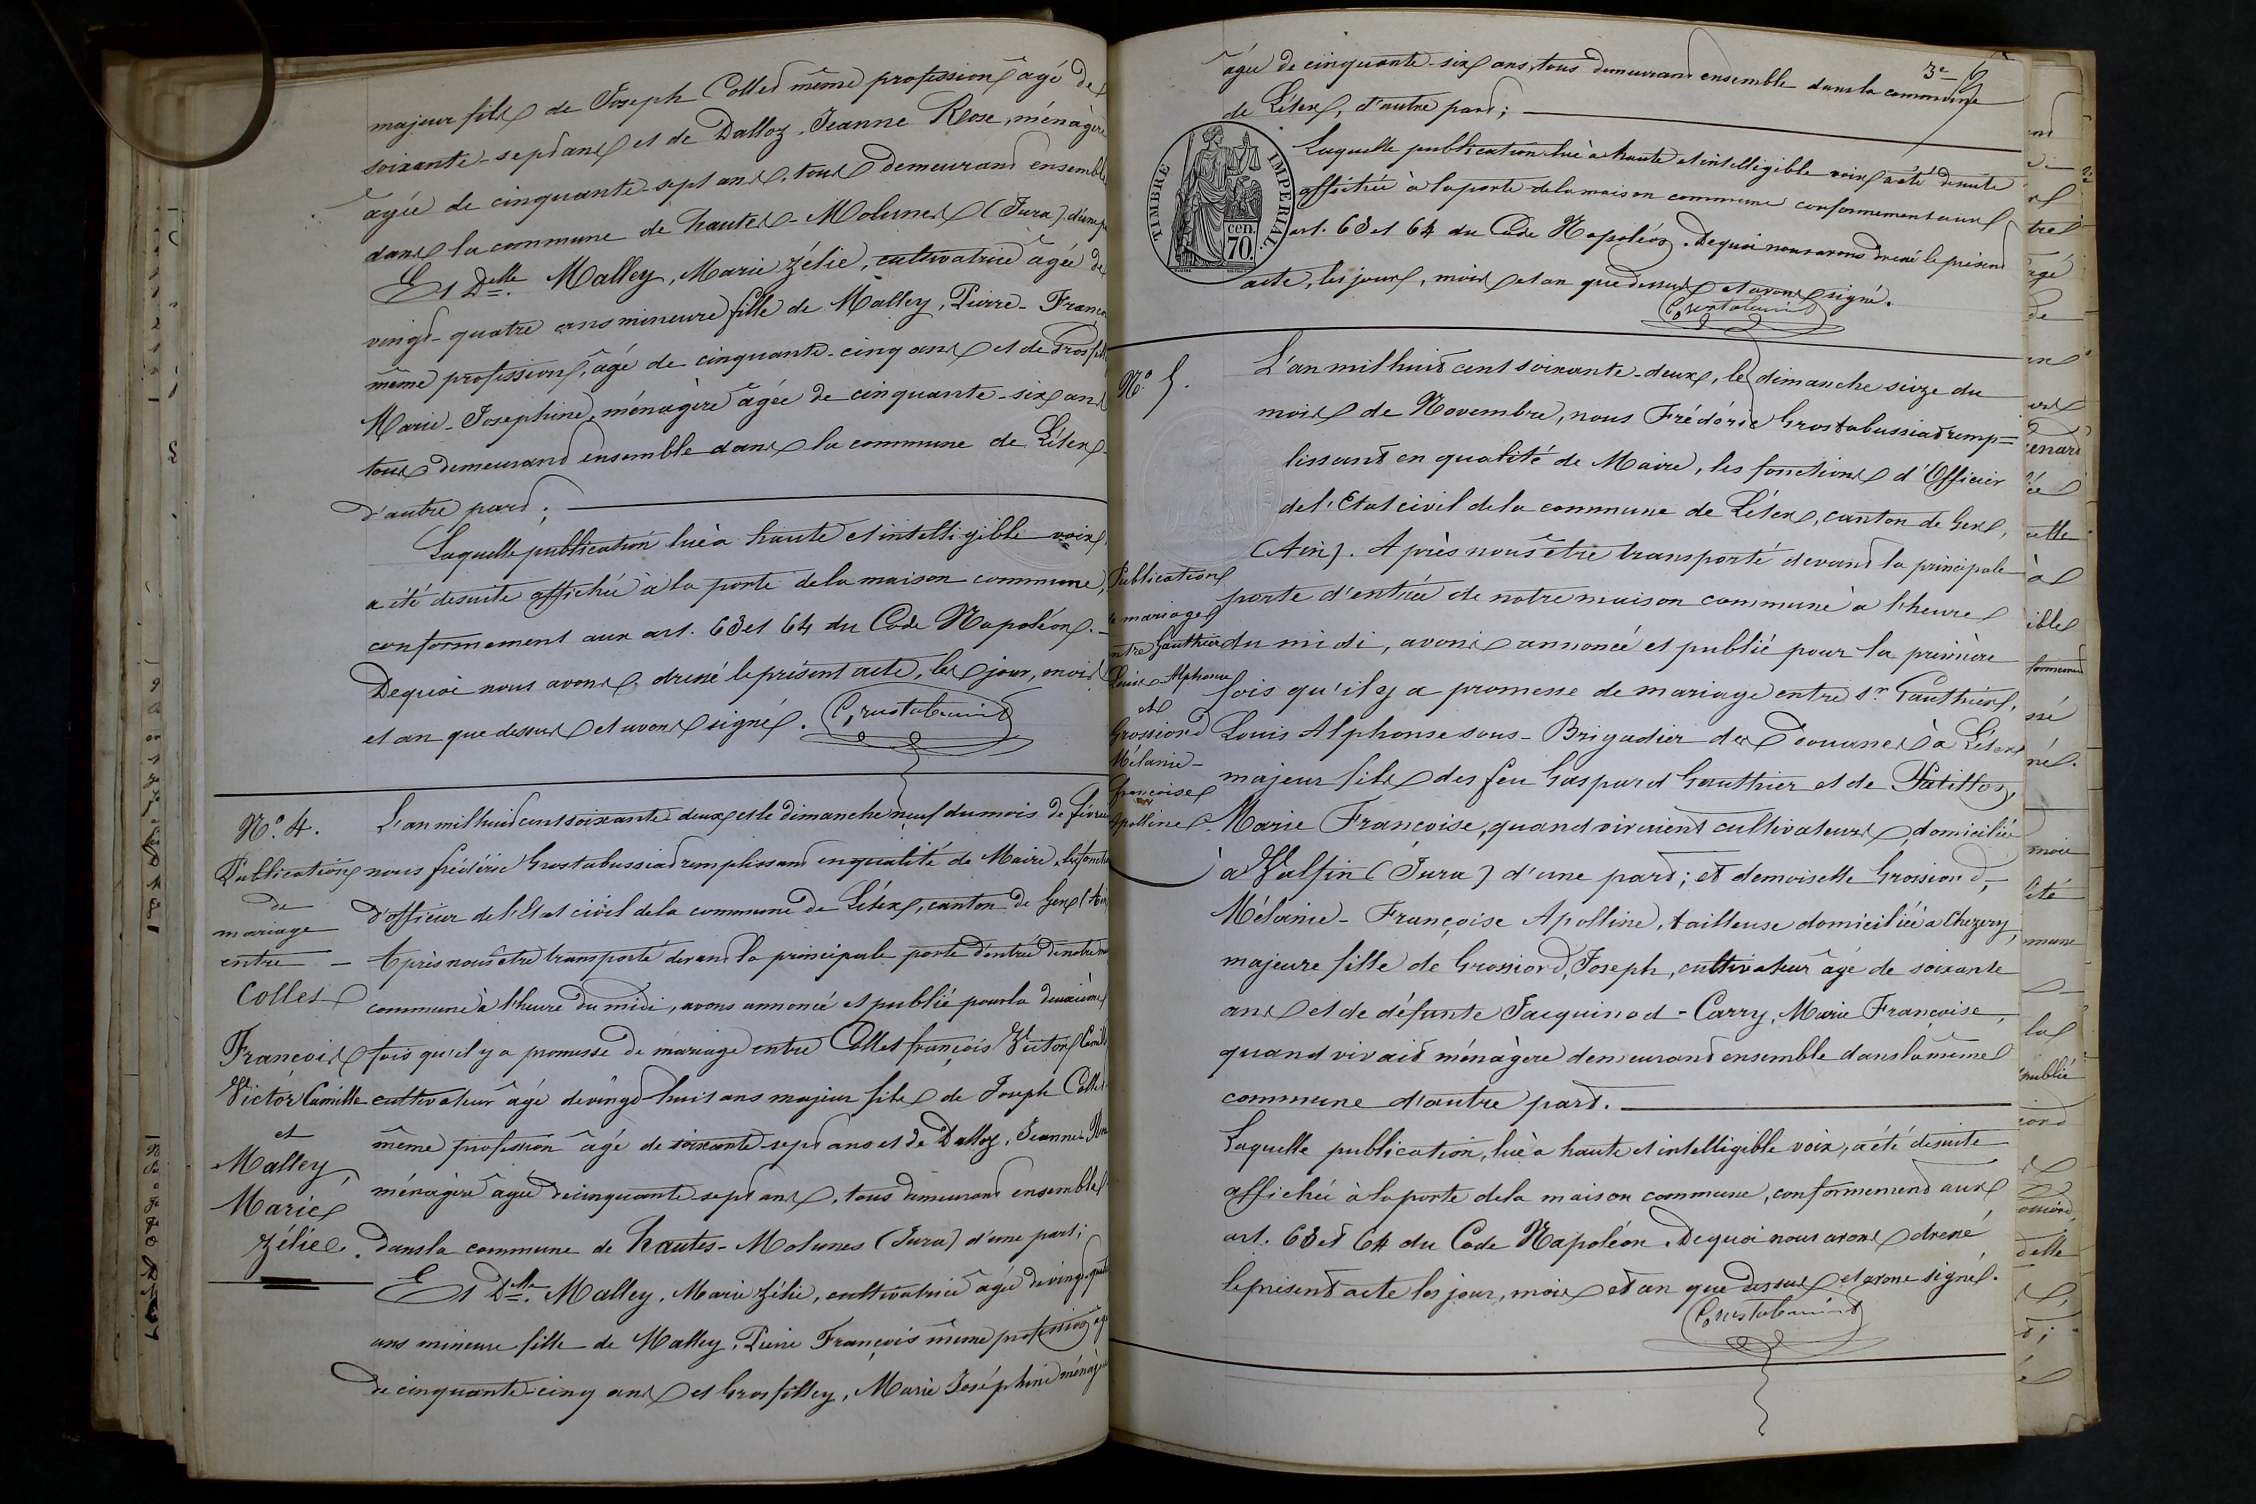 majeur fils de Joseph Collet même profession âgé de
soixante-sept ans et de Dalloz, Jeanne Rose, ménagère
âgée de cinquante-sept ans, tous demeurant ensemble
dans la commune de hautes-Molunes (Jura) d'une p
Et Delle. Malley, Marie Zélie, cultivatrice âgée de
vingt-quatre ans mineure fille de Malley, Pierre-Franço
même profession, âgé de cinquante-cinq ans et de Grosfill
Marie-Josephine, ménagère âgée de cinquante-six ans
tous demeurant ensemble dans la commune de Lélex
d'autre part;
Laquelle publication lue à haute et intelligible voix,
a été desuite affichée à la porte de la maison commune,
conformement aux art. 63 et 64 du Code Napoléon.
Dequoi nous avons dressé le présent acte, les jour, mois
et an que dessus et avons signé.
No. 4.
Publication
de
mariage
entre
Collet
François
Victor Camille
et
Malley,
Marie
Zélie.
L'an mil huit cent soixante-deux et le dimanche neuf du mois de févri
nous frédéric Grostabussiat remplissant en qualité de Maire, les foncti
d'officier de l'Etat civil de la commune de Lélex, canton de Gex (Ain
Après nous être transporté devant la principale porte d'entrée de notre
commune à l'heure du midi, avons annoncé et publié pour la deuxième
fois qu'il y a promesse de mariage entre Collet françois Victor Camill
cultivateur âgé de vingt-huit ans majeur fils de Joseph Collet
même profession âgé de soixante-sept ans et de Dalloz, Jeanne
ménagère âgée de cinquante-sept ans, tous demeurant ensemble
dans la commune de hautes-Molunes (Jura) d'une part;
Et Delle. Malley, Marie Zélie, cultivatrice âgée de vingt-quatre
ans mineure fille de Malley, Pierre François même profession âgé
de cinquante-cinq ans et Grosfilley, Marie Joséphine ménagère
3e
âgée de cinquante-six ans, tous demeurant ensemble dans la commune
de Lélex, d'autre part;
TIMBRE IMPERIAL.
cen.
70.
Laquelle publication lue à haute et intelligible voix a été desuite
affichée à la porte de la maison commune conformement aux
art. 63 et 64 du Code Napoléon. Dequoi nous avons dressé le présent
acte, les jours, mois et an que dessus et avons signé.
No. 5.
Publication
de mariage
entre Gauthier
Louis-Alphonse
et
Grossiord
Mélanie-
françoise
Apolline.
L'an mil huit cent soixante-deux, le dimanche seize du
mois de Novembre, nous Frédéric Grostabussiat remp=
lissant en qualité de Maire, les fonctions d'Officier
de l'Etat civil de la commune de Lélex, canton de Gex,
(Ain). Après nous être transporté devant la principale
porte d'entrée de notre maison commune à l'heure
du midi, avons annoncé et publié pour la première
fois qu'il y a promesse de mariage entre Sr. Gauthier,
Louis Alphonse sous-Brigadier des Douanes à Lélex
majeur fils des feu Gaspard Gauthier et de
Marie Françoise, quand vivaient cultivateurs, domiciliés
à Valfin (Jura) d'une part; et demoiselle Grossiord,
Mélanie-Françoise Apolline, tailleuse domiciliée à Chezery,
majeure fille de Grossiord, Joseph, cultivateur âgé de soixante
ans et de défunte Jacquinod-Carry, Marie Françoise,
quand vivait ménagère demeurant ensemble dans la même
commune d'autre part.
Laquelle publication, lue à haute et intelligible voix, a été desuite
affichée à la porte de la maison commune, conformement aux
art. 63 et 64 du Code Napoléon. Dequoi nous avons dressé
le présent acte les jour, mois et an que dessus et avons signé.